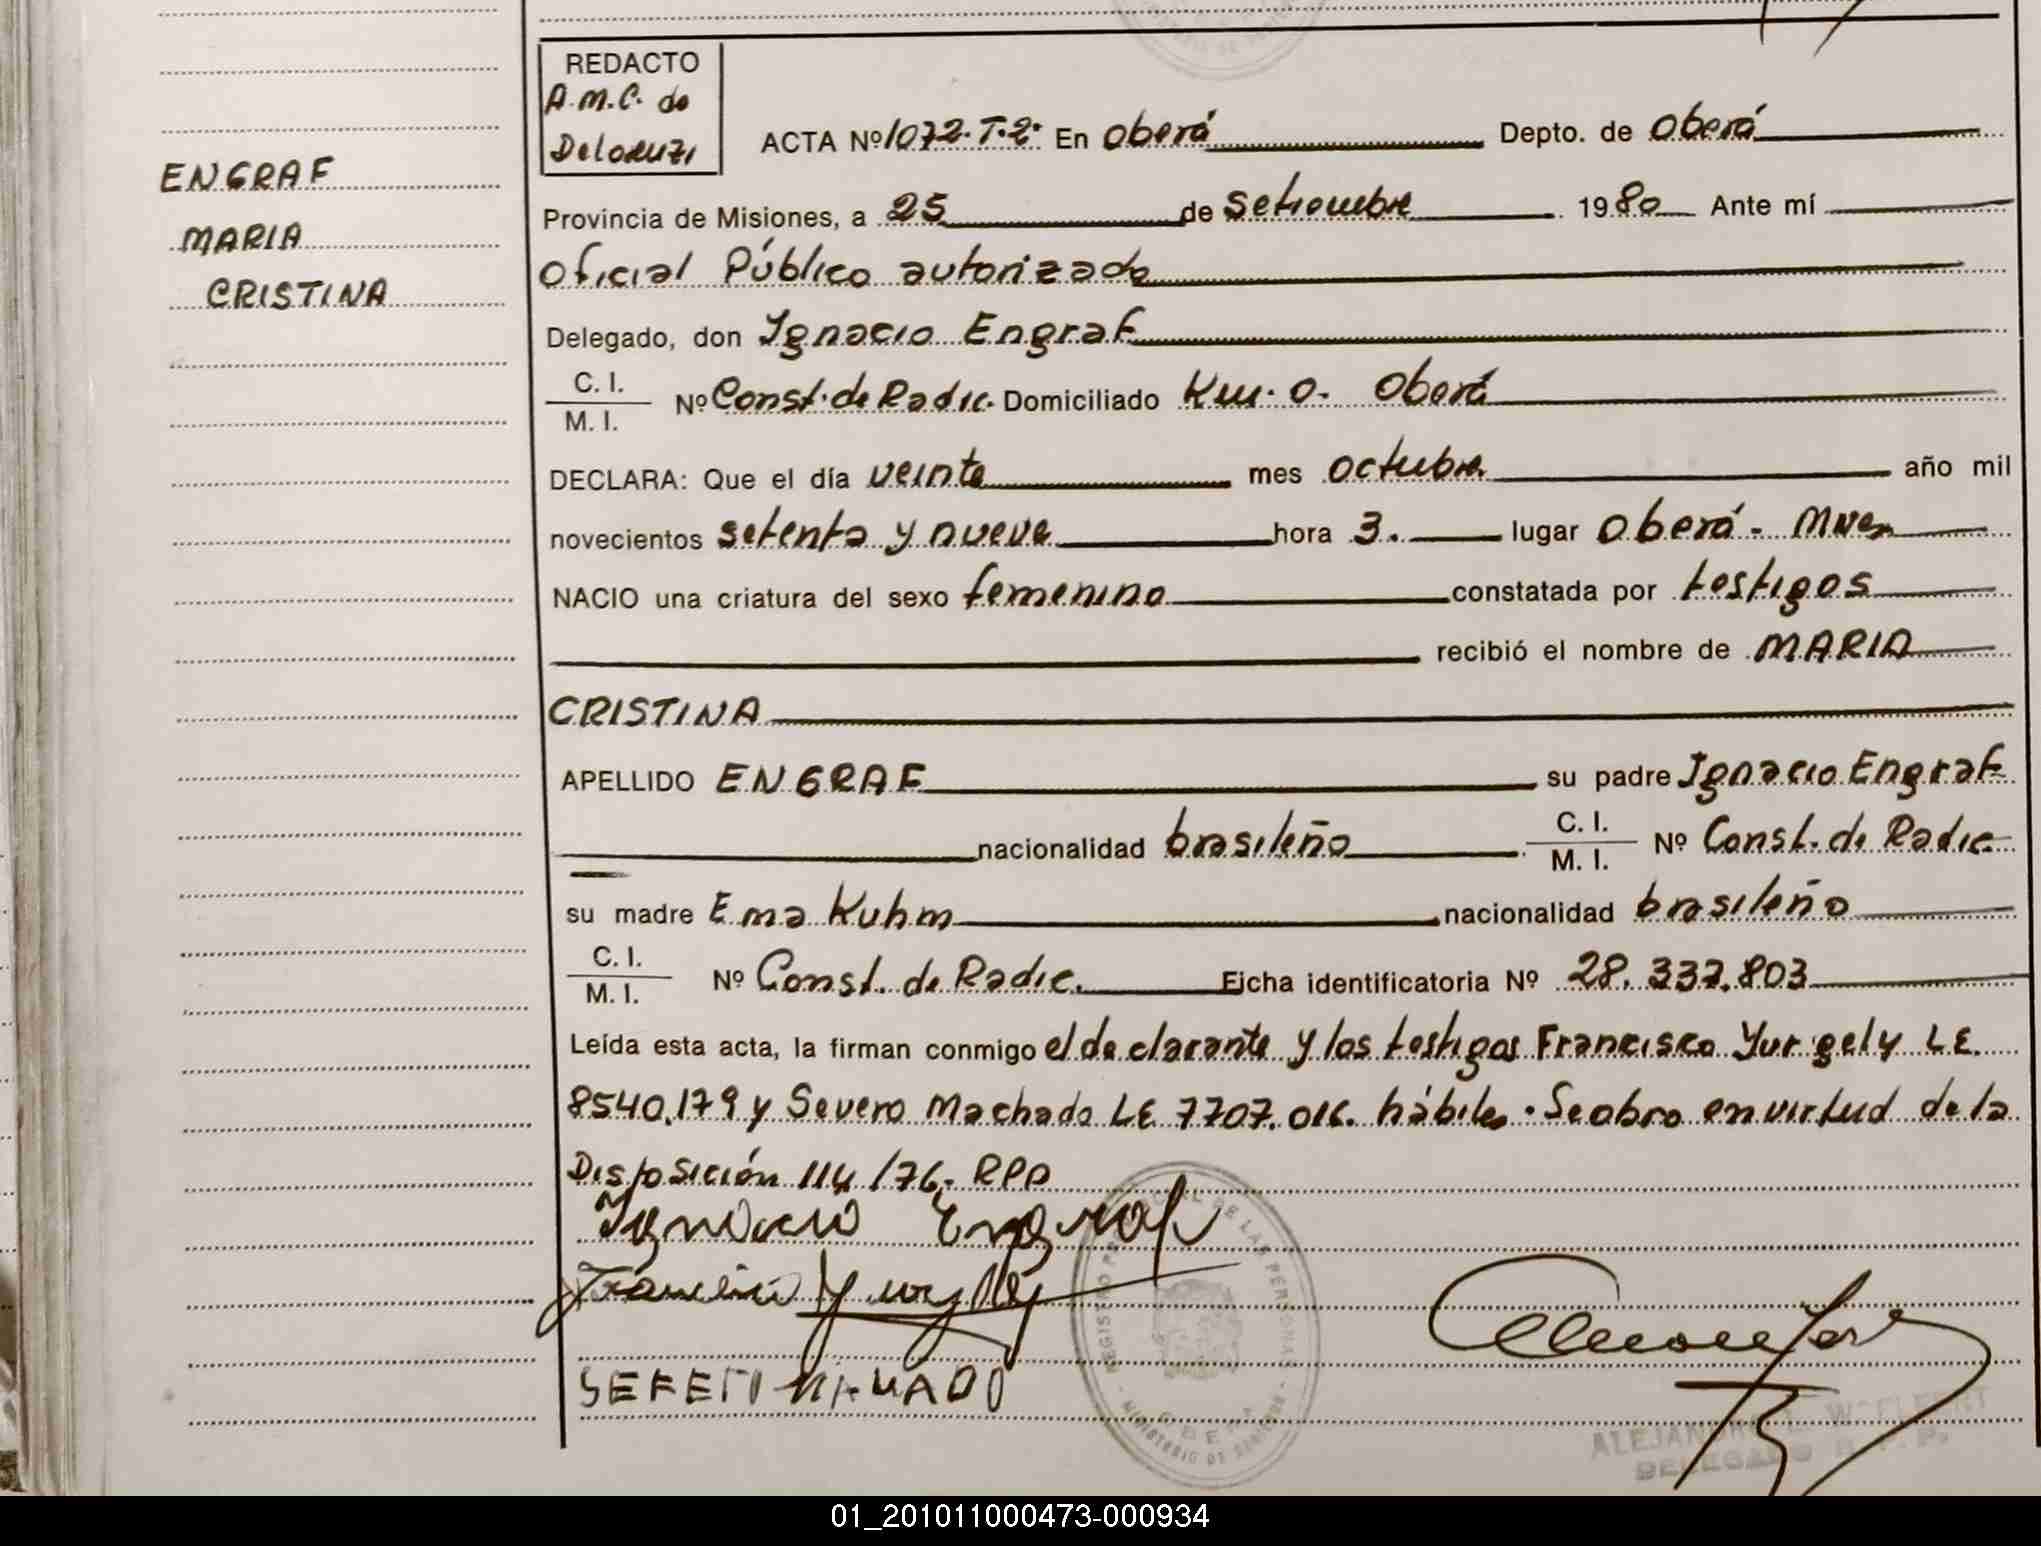 REDACTO
A.M.C. de
Delorenzi
ENGRAF
MARIA
CRISTINA
ACTA Nº 1072. T. 2º En Oberá Depto. de Oberá
Provincia de Misiones, a 25 de Setiembre 1980 Ante mí
Oficial Público autorizado
Delegado, don Ignacio Engraf
C. I.
M. I.
Nº Const. de Radic. Domiciliado Km. 0. Oberá
DECLARA: Que el día veinte mes octubre año mil
novecientos setenta y nueve hora 3. lugar Oberá - Mnes
NACIO una criatura del sexo femenino constatada por testigos
recibió el nombre de MARIA
CRISTINA
APELLIDO ENGRAF su padre Ignacio Engraf
nacionalidad brasileño C. I.
M. I.
Nº Const. de Radic
su madre Ema Kuhm nacionalidad brasileño
C. I.
M. I.
Nº Const. de Radic. Ficha identificatoria Nº 28.337.803
Leída esta acta, la firman conmigo el declarante y los testigos Francisco Yurgely LE.
8540.179 y Severo Machado LE 7707.016. hábiles. Se abro en virtud de la
Disposición 114/76. RPP
Ignacio Engraf
REGISTRO DE LAS PERSONAS
MINISTERIO DE
ALEJANDRO
DELEGADO R. P. P.
01_201011000473-000934